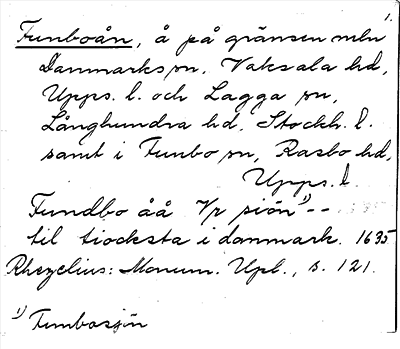 1.
Funboån, å på gränsen mln
Danmarks sn, Vaksala hd,
Upps. l. och Lagga sn,
Långhundra hd, Stockh. l.
samt i Funbo sn, Rasbo hd,
Upps. l.
Fundbo åå Vr siön 1) --
til tiocksta i danmark. 1635
Rhezelius: Monum. Upl., s. 121.
1) Funbosjön